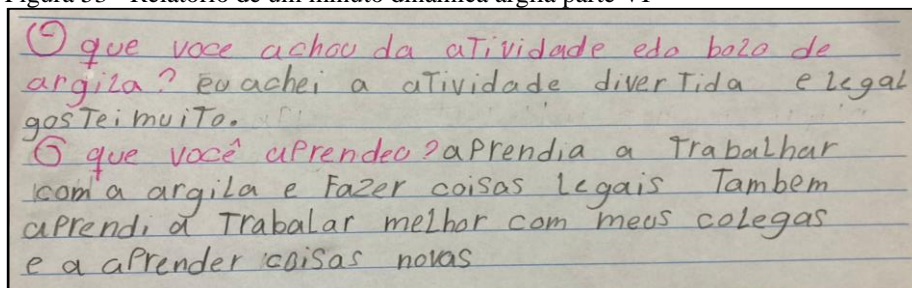 Figura 33 - Relatório de um minuto dinâmica argila parte VI
O que voce achou da atividade edo bolo de
argila? eu achei a atividade divertida e legal
gostei muito.
O que você aprendeu? aprendia a trabalhar
com a argila e Fazer coisas legais Tambem
aprendi a Trabalar melhor com meus colegas
e a aprender coisas novas